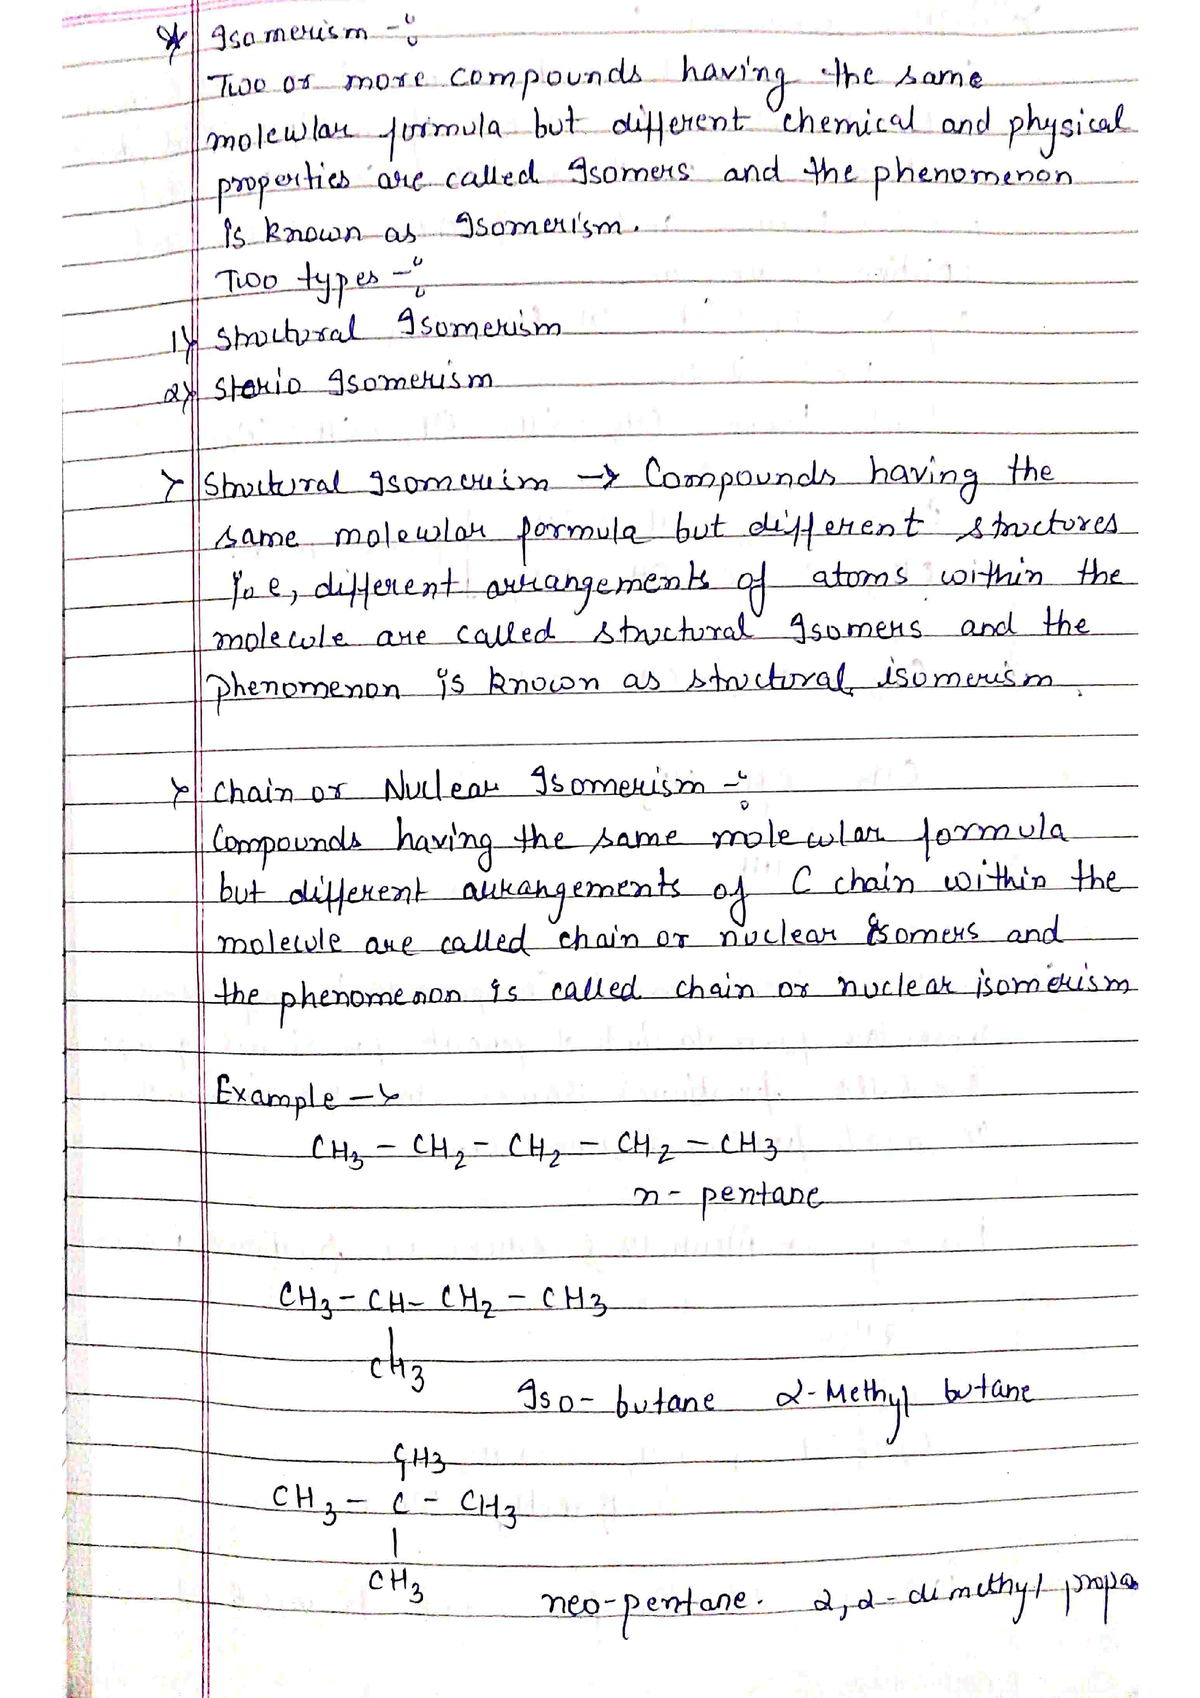 * Isomerism -:
Two or more compounds having the same
molecular formula but different chemical and physical
properties are called Isomers and the phenomenon
is known as Isomerism.
Two types -:
1) Structural Isomerism
2) Sterio Isomerism
> Structural Isomerism → Compounds having the
same molecular formula but different structures
i.e, different arrangements of atoms within the
molecule are called structural Isomers and the
phenomenon is known as structural isomerism.
> Chain or Nuclear Isomerism -:
Compounds having the same molecular formula
but different arrangements of C chain within the
molecule are called chain or nuclear isomers and
the phenomenon is called chain or nuclear isomerism
Example →
CH3 - CH2 - CH2 - CH2 - CH3
n - pentane
CH3 - CH - CH2 - CH3
|
CH3
Iso - butane 2-Methyl butane
CH3
CH3 - C - CH3
|
CH3
neo-pentane. 2,2-dimethyl propa